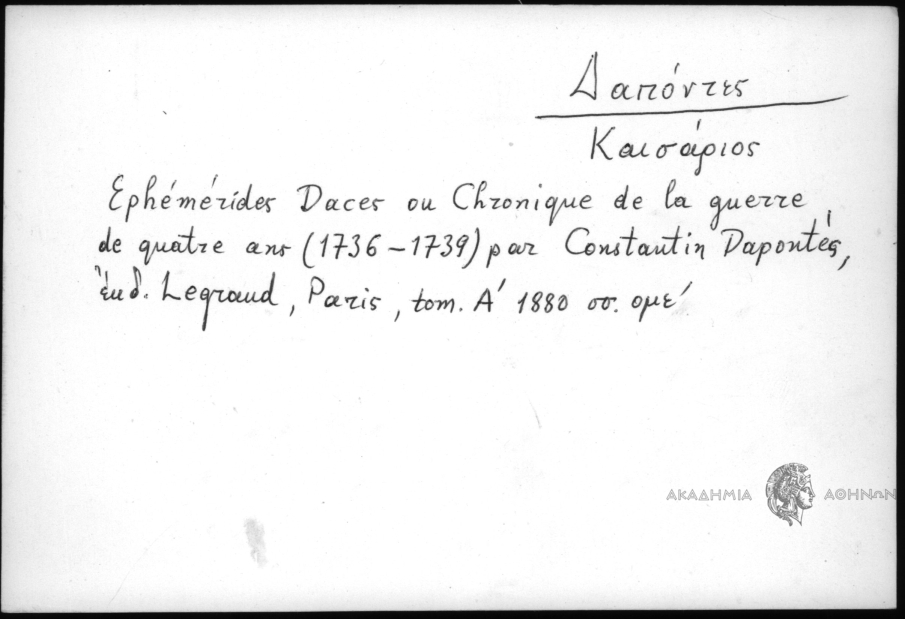 Δαπόντες
Καισάριος
Ephémérides Daces ou Chronique de la guerre
de quatre ans (1736-1739) par Constantin Dapontès,
ἐκδ. Legrand, Paris, tom. Α΄ 1880 σσ. ομε΄
ΑΚΑΔΗΜΙΑ ΑΘΗΝΩΝ